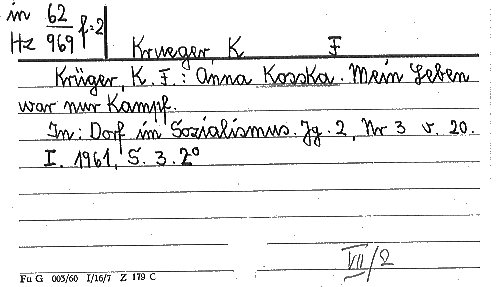 in 62
Hz 969 f=2
Krueger, K F
Krüger, K. F.: Anna Kosska. Mein Leben
war nur Kampf.
In: Dorf im Sozialismus. Jg. 2, Nr 3 v. 20.
I. 1961, S. 3. 2°
VII/2
Fu G 003/60 I/16/7 Z 179 C